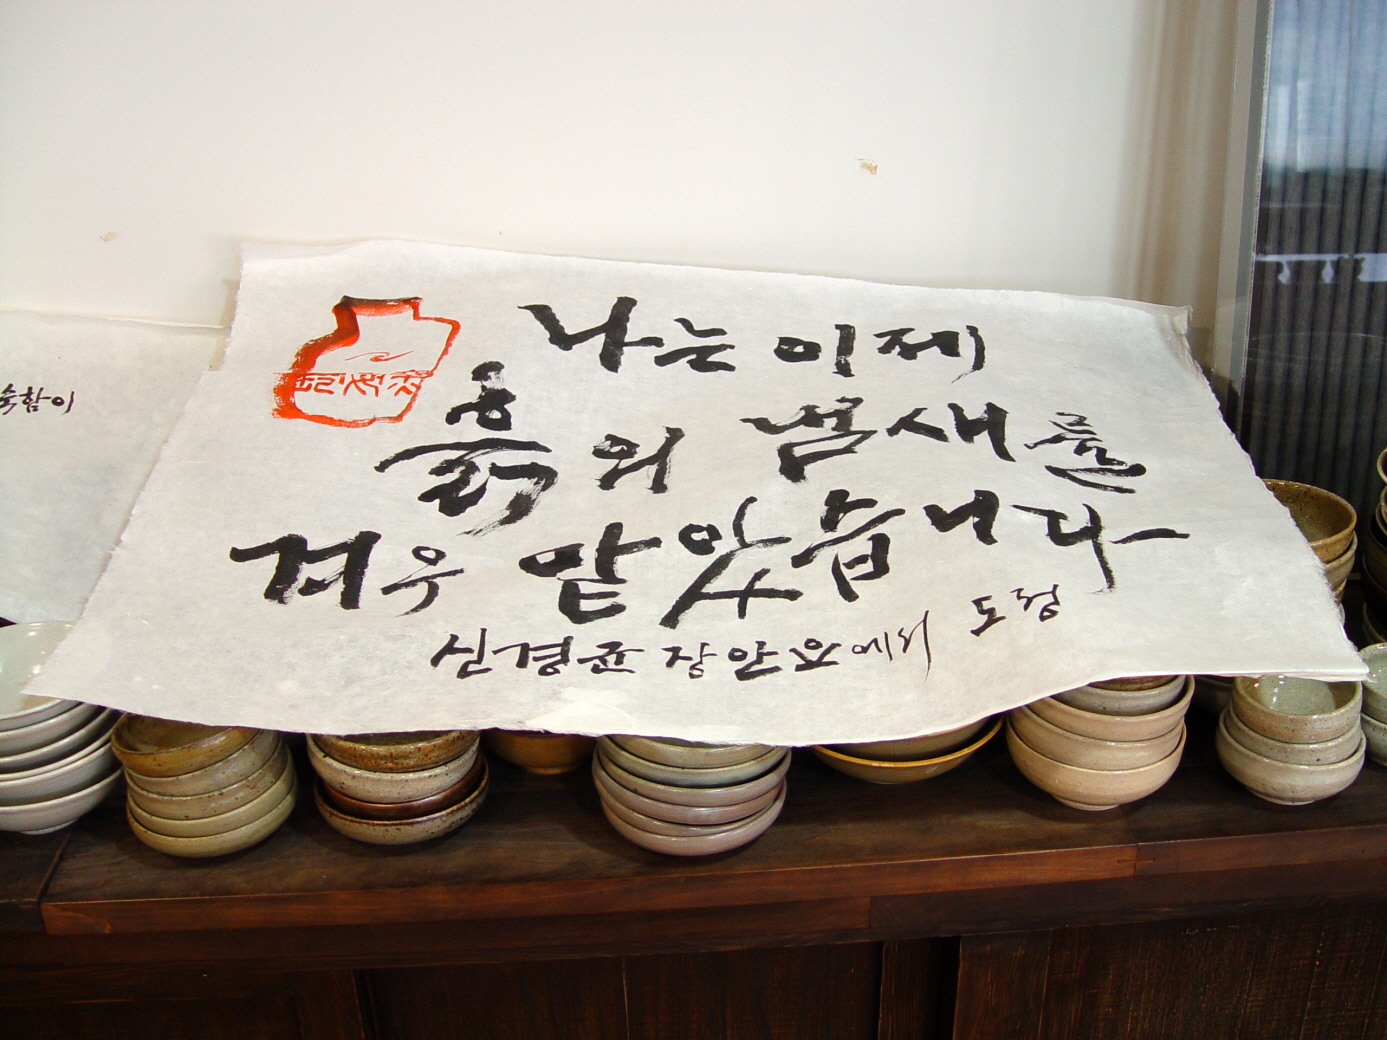 나는 이제
흙의 냄새를
겨우 맡았습니다
신경균 장안요에서 도정
숙함이